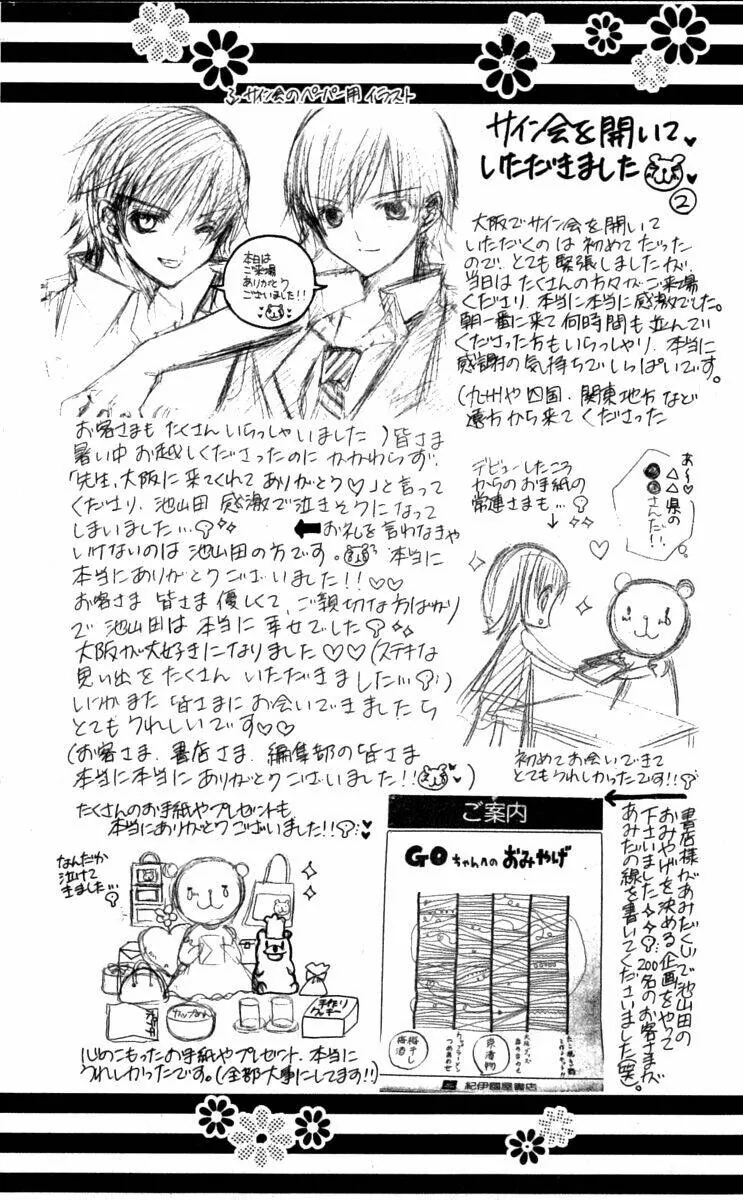 サイン会のペーパー用イラスト
サイン会を開いて
いただきました
②
本日は
ご来場
ありがとう
ございました!!
大阪でサイン会を開いて
いただくのは初めてだった
ので、とても緊張しましたが
当日はたくさんの方々がご来場
くださり、本当に本当に感激でした。
朝一番に来て何時間も並んで
くださった方もいらっしゃり、本当に
感謝の気持ちでいっぱいです。
(九州や四国、関東地方など
遠方から来てくださった
お客さまもたくさんいらっしゃいました)皆さま
暑い中お越しくださったのにかかわらず、
「先生、大阪に来てくれてありがとう♡」と言って
くださり、池山田感激で泣きそうになって
しまいました…
←お礼を言わなきゃ
いけないのは池山田の方です。本当に
本当にありがとうございました!!♡♡
お客さま皆さま優しくて、ご親切な方ばかり
で池山田は本当に幸せでした
大阪が大好きになりました♡♡(ステキな
思い出をたくさんいただきました…)
いつかまた皆さまにお会いできましたら
とてもうれしいです♡♡
(お客さま、書店さま、編集部の皆さま
本当に本当にありがとうございました!!)
デビューしたころ
からのお手紙の
常連さまも…
↓
あ〜♡
△△県の
●●さんだ!!
初めてお会いできて
とてもうれしかったです!!
たくさんのお手紙やプレゼントも
本当にありがとうございました!!
なんだか
泣けて
きました…
カップめん
手作り
クッキー
心のこもったお手紙やプレゼント、本当に
うれしかったです。(全部大事にしてます!!)
書店様があみだくじで池山田の
おみやげを決める企画をやって
下さいました。200名のお客さまが
あみだの線を書いてくださいました(笑)。
ご案内
GOちゃんへのおみやげ
梅干し
梅酒
カップラーメン
つめあわせ
京漬物
大阪グッズ
紀伊國屋書店